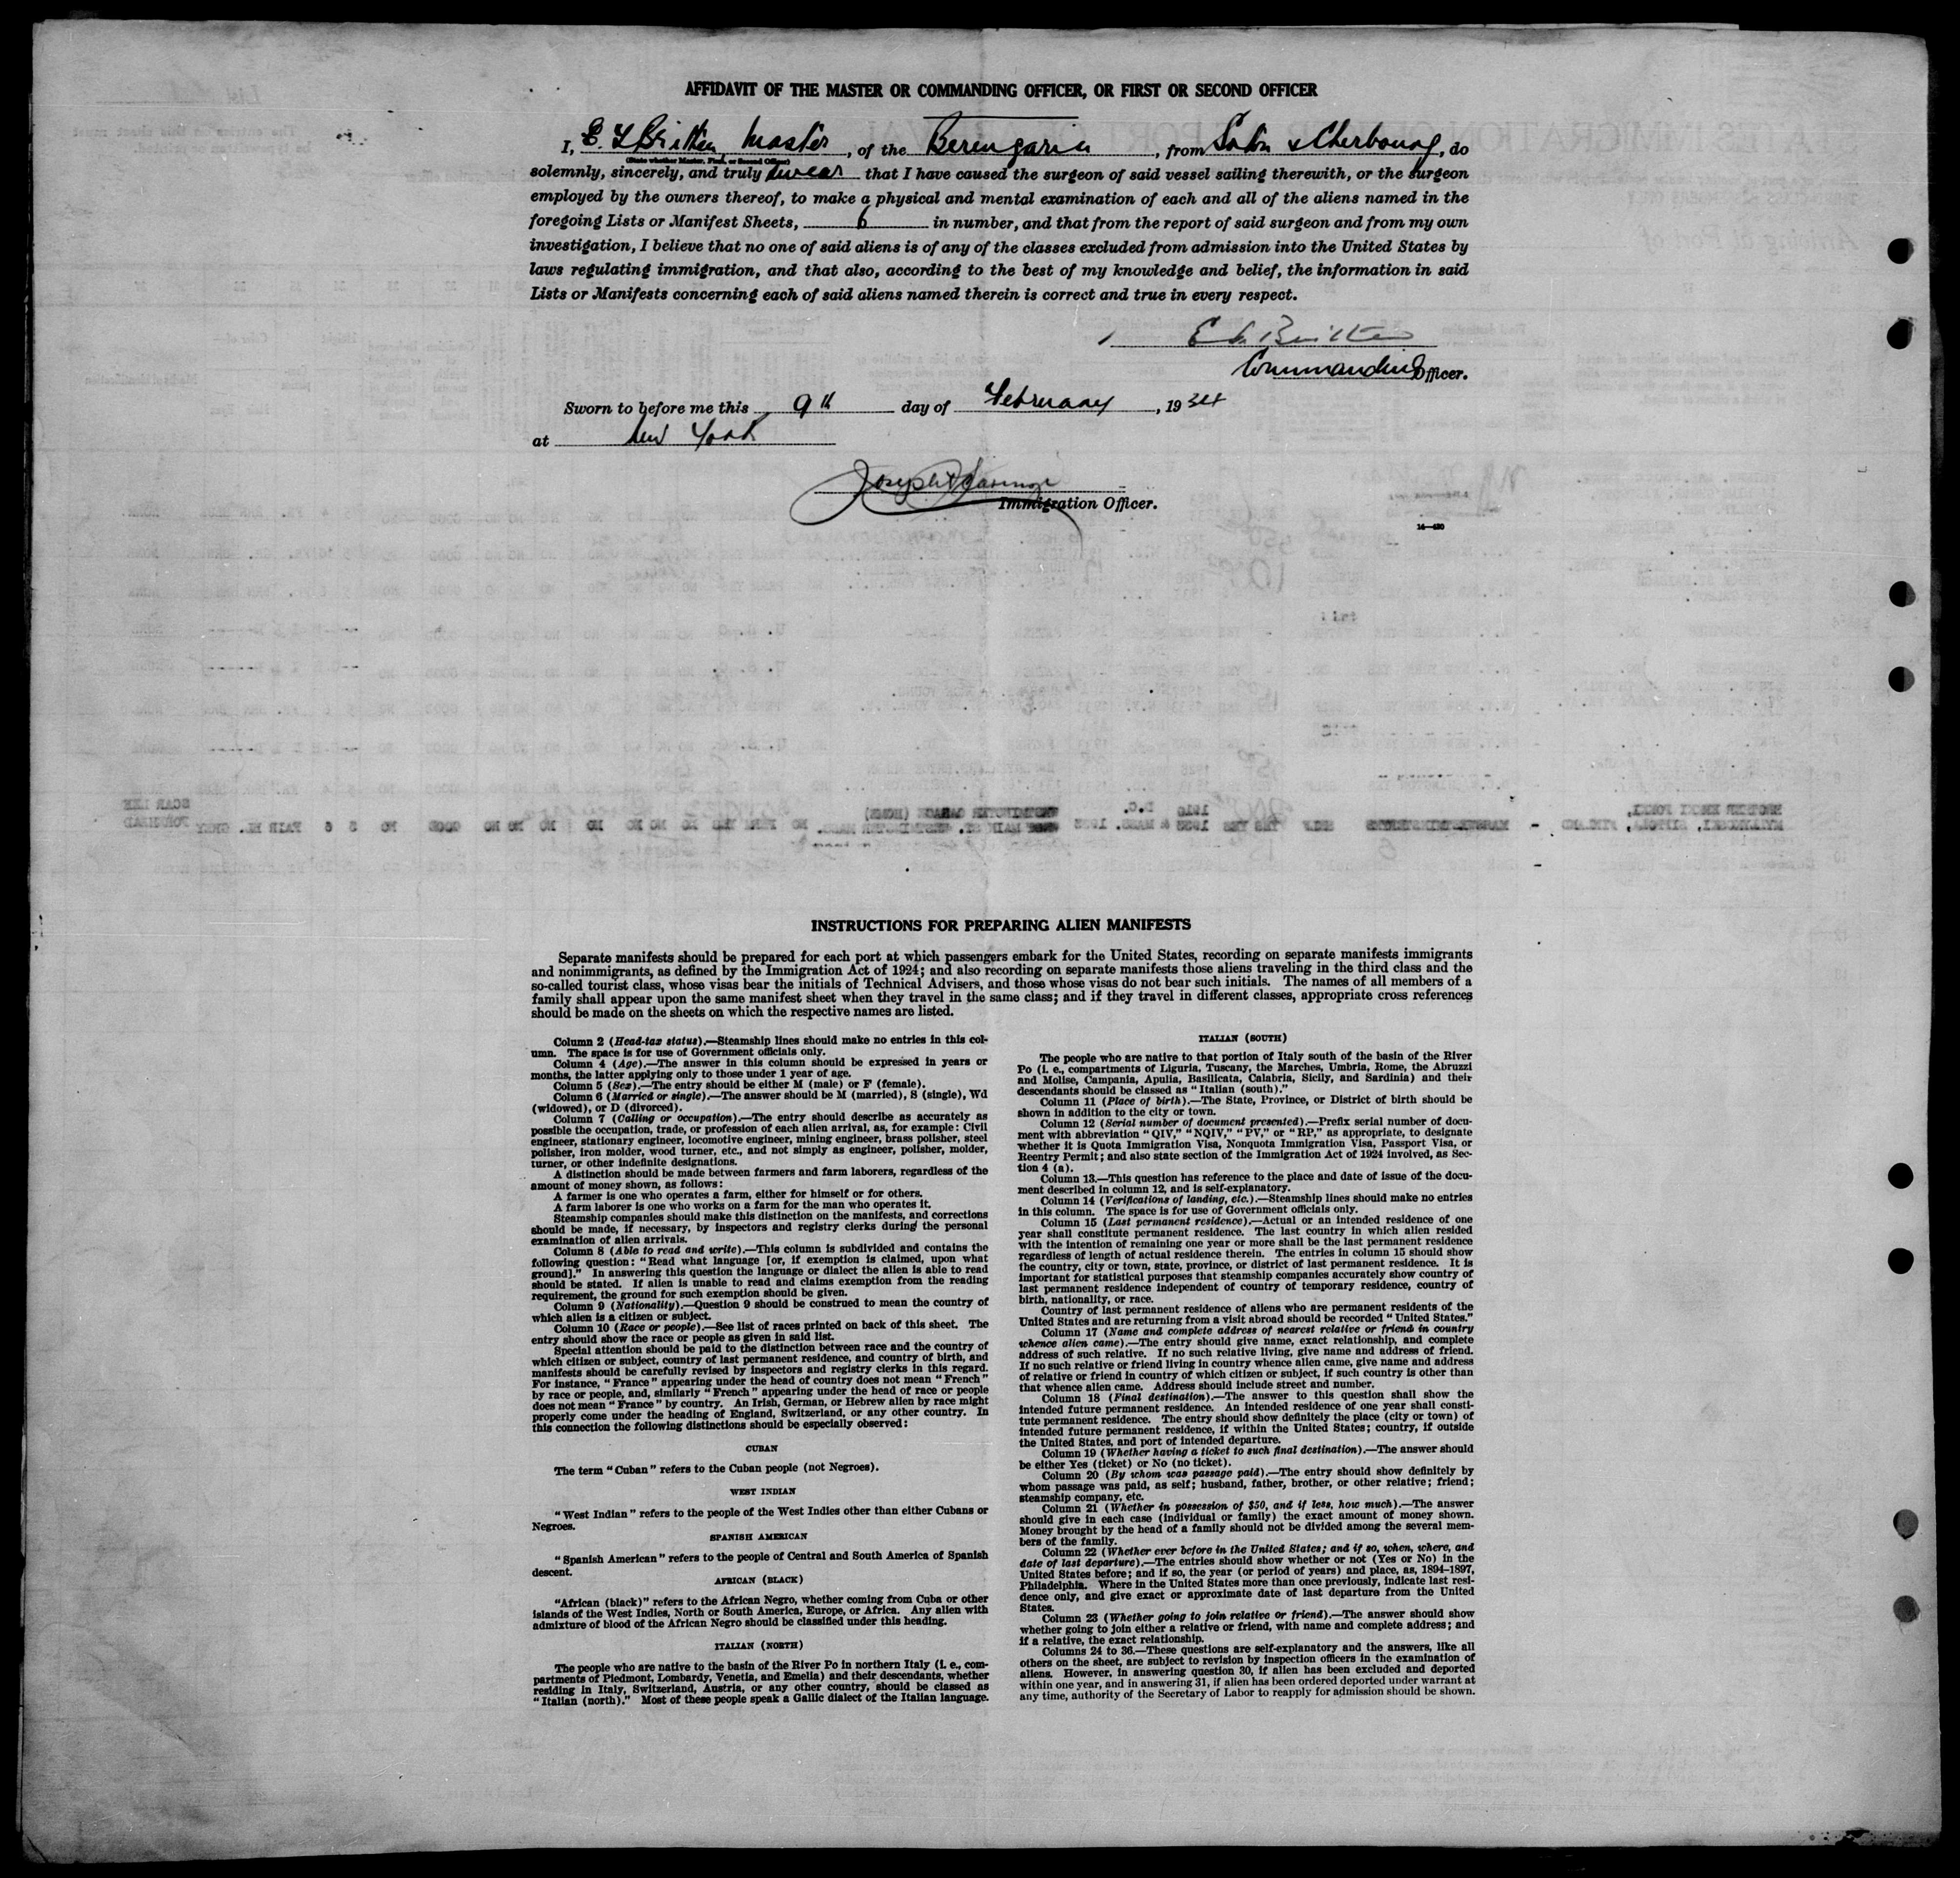 AFFIDAVIT OF THE MASTER OR COMMANDING OFFICER, OR FIRST OR SECOND OFFICER
I, E. Britten Master, of the Berengaria, from Soton & Cherbourg, do
(State whether Master, First, or Second Officer)
solemnly, sincerely, and truly swear that I have caused the surgeon of said vessel sailing therewith, or the surgeon
employed by the owners thereof, to make a physical and mental examination of each and all of the aliens named in the
foregoing Lists or Manifest Sheets, 6 in number, and that from the report of said surgeon and from my own
investigation, I believe that no one of said aliens is of any of the classes excluded from admission into the United States by
laws regulating immigration, and that also, according to the best of my knowledge and belief, the information in said
Lists or Manifests concerning each of said aliens named therein is correct and true in every respect.
E Britten
Commanding Officer.
Sworn to before me this 9th day of February, 1934
at New York
Joseph
Immigration Officer.
14—420
INSTRUCTIONS FOR PREPARING ALIEN MANIFESTS
Separate manifests should be prepared for each port at which passengers embark for the United States, recording on separate manifests immigrants
and nonimmigrants, as defined by the Immigration Act of 1924; and also recording on separate manifests those aliens traveling in the third class and the
so-called tourist class, whose visas bear the initials of Technical Advisers, and those whose visas do not bear such initials. The names of all members of a
family shall appear upon the same manifest sheet when they travel in the same class; and if they travel in different classes, appropriate cross references
should be made on the sheets on which the respective names are listed.
Column 2 (Head-tax status).—Steamship lines should make no entries in this col-
umn. The space is for use of Government officials only.
Column 4 (Age).—The answer in this column should be expressed in years or
months, the latter applying only to those under 1 year of age.
Column 5 (Sex).—The entry should be either M (male) or F (female).
Column 6 (Married or single).—The answer should be M (married), S (single), Wd
(widowed), or D (divorced).
Column 7 (Calling or occupation).—The entry should describe as accurately as
possible the occupation, trade, or profession of each alien arrival, as, for example: Civil
engineer, stationary engineer, locomotive engineer, mining engineer, brass polisher, steel
polisher, iron molder, wood turner, etc., and not simply as engineer, polisher, molder,
turner, or other indefinite designations.
A distinction should be made between farmers and farm laborers, regardless of the
amount of money shown, as follows:
A farmer is one who operates a farm, either for himself or for others.
A farm laborer is one who works on a farm for the man who operates it.
Steamship companies should make this distinction on the manifests, and corrections
should be made, if necessary, by inspectors and registry clerks during the personal
examination of alien arrivals.
Column 8 (Able to read and write).—This column is subdivided and contains the
following question: "Read what language [or, if exemption is claimed, upon what
ground]." In answering this question the language or dialect the alien is able to read
should be stated. If alien is unable to read and claims exemption from the reading
requirement, the ground for such exemption should be given.
Column 9 (Nationality).—Question 9 should be construed to mean the country of
which alien is a citizen or subject.
Column 10 (Race or people).—See list of races printed on back of this sheet. The
entry should show the race or people as given in said list.
Special attention should be paid to the distinction between race and the country of
which citizen or subject, country of last permanent residence, and country of birth, and
manifests should be carefully revised by inspectors and registry clerks in this regard.
For instance, "France" appearing under the head of country does not mean "French"
by race or people, and, similarly "French" appearing under the head of race or people
does not mean "France" by country. An Irish, German, or Hebrew alien by race might
properly come under the heading of England, Switzerland, or any other country. In
this connection the following distinctions should be especially observed:
CUBAN
The term "Cuban" refers to the Cuban people (not Negroes).
WEST INDIAN
"West Indian" refers to the people of the West Indies other than either Cubans or
Negroes.
SPANISH AMERICAN
"Spanish American" refers to the people of Central and South America of Spanish
descent.
AFRICAN (BLACK)
"African (black)" refers to the African Negro, whether coming from Cuba or other
islands of the West Indies, North or South America, Europe, or Africa. Any alien with
admixture of blood of the African Negro should be classified under this heading.
ITALIAN (NORTH)
The people who are native to the basin of the River Po in northern Italy (i. e., com-
partments of Piedmont, Lombardy, Venetia, and Emelia) and their descendants, whether
residing in Italy, Switzerland, Austria, or any other country, should be classed as
"Italian (north)." Most of these people speak a Gallic dialect of the Italian language.
ITALIAN (SOUTH)
The people who are native to that portion of Italy south of the basin of the River
Po (i. e., compartments of Liguria, Tuscany, the Marches, Umbria, Rome, the Abruzzi
and Molise, Campania, Apulia, Basilicata, Calabria, Sicily, and Sardinia) and their
descendants should be classed as "Italian (south)."
Column 11 (Place of birth).—The State, Province, or District of birth should be
shown in addition to the city or town.
Column 12 (Serial number of document presented).—Prefix serial number of docu-
ment with abbreviation "QIV," "NQIV," "PV," or "RP," as appropriate, to designate
whether it is Quota Immigration Visa, Nonquota Immigration Visa, Passport Visa, or
Reentry Permit; and also state section of the Immigration Act of 1924 involved, as Sec-
tion 4 (a).
Column 13.—This question has reference to the place and date of issue of the docu-
ment described in column 12, and is self-explanatory.
Column 14 (Verifications of landing, etc.).—Steamship lines should make no entries
in this column. The space is for use of Government officials only.
Column 15 (Last permanent residence).—Actual or an intended residence of one
year shall constitute permanent residence. The last country in which alien resided
with the intention of remaining one year or more shall be the last permanent residence
regardless of length of actual residence therein. The entries in column 15 should show
the country, city or town, state, province, or district of last permanent residence. It is
important for statistical purposes that steamship companies accurately show country of
last permanent residence independent of country of temporary residence, country of
birth, nationality, or race.
Country of last permanent residence of aliens who are permanent residents of the
United States and are returning from a visit abroad should be recorded "United States."
Column 17 (Name and complete address of nearest relative or friend in country
whence alien came).—The entry should give name, exact relationship, and complete
address of such relative. If no such relative living, give name and address of friend.
If no such relative or friend living in country whence alien came, give name and address
of relative or friend in country of which citizen or subject, if such country is other than
that whence alien came. Address should include street and number.
Column 18 (Final destination).—The answer to this question shall show the
intended future permanent residence. An intended residence of one year shall consti-
tute permanent residence. The entry should show definitely the place (city or town) of
intended future permanent residence, if within the United States; country, if outside
the United States, and port of intended departure.
Column 19 (Whether having a ticket to such final destination).—The answer should
be either Yes (ticket) or No (no ticket).
Column 20 (By whom was passage paid).—The entry should show definitely by
whom passage was paid, as self; husband, father, brother, or other relative; friend;
steamship company, etc.
Column 21 (Whether in possession of $50, and if less, how much).—The answer
should give in each case (individual or family) the exact amount of money shown.
Money brought by the head of a family should not be divided among the several mem-
bers of the family.
Column 22 (Whether ever before in the United States; and if so, when, where, and
date of last departure).—The entries should show whether or not (Yes or No) in the
United States before; and if so, the year (or period of years) and place, as, 1894–1897,
Philadelphia. Where in the United States more than once previously, indicate last resi-
dence only, and give exact or approximate date of last departure from the United
States.
Column 23 (Whether going to join relative or friend).—The answer should show
whether going to join either a relative or friend, with name and complete address; and
if a relative, the exact relationship.
Columns 24 to 36.—These questions are self-explanatory and the answers, like all
others on the sheet, are subject to revision by inspection officers in the examination of
aliens. However, in answering question 30, if alien has been excluded and deported
within one year, and in answering 31, if alien has been ordered deported under warrant at
any time, authority of the Secretary of Labor to reapply for admission should be shown.